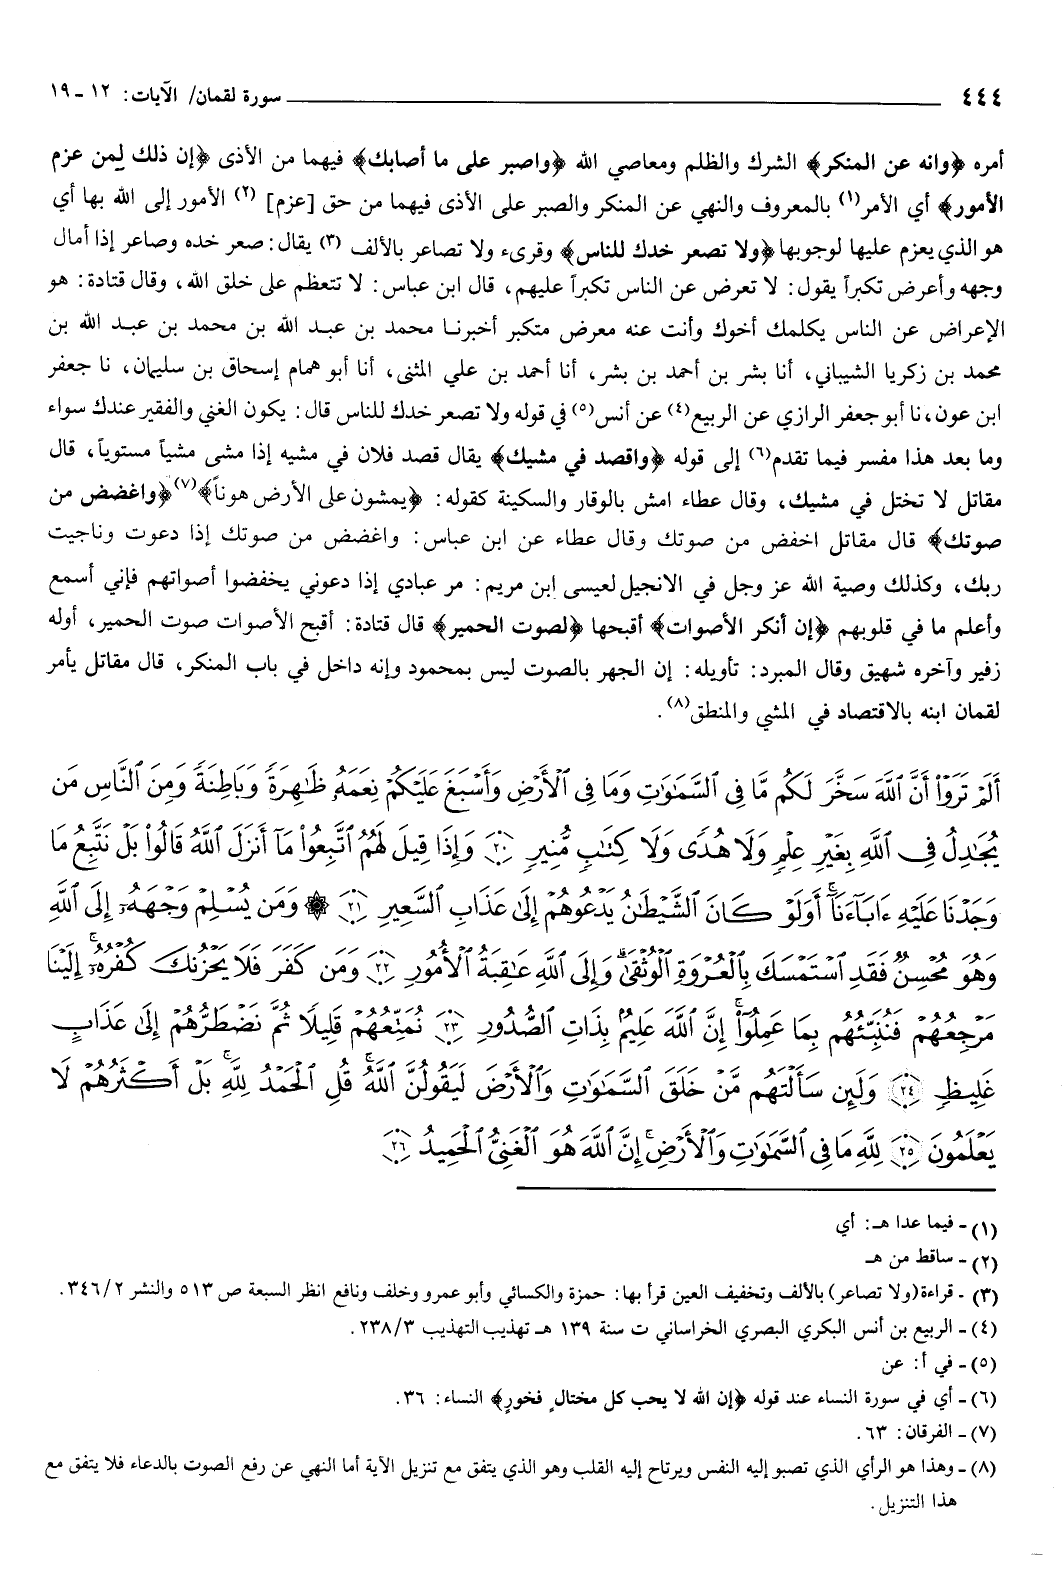 ٤٤٤ سورة لقمان/ الآيات: ١٢ - ١٩
أمره ﴿وانه عن المنكر﴾ الشرك والظلم ومعاصي الله ﴿واصبر على ما أصابك﴾ فيهما من الأذى ﴿إن ذلك لمن عزم
الأمور﴾ أي الأمر(١) بالمعروف والنهي عن المنكر والصبر على الأذى فيهما من حق [عزم] (٢) الأمور إلى الله بها أي
هو الذي يعزم عليها لوجوبها ﴿ولا تصعر خدك للناس﴾ وقرىء ولا تصاعر بالألف (٣) يقال: صعر خده وصاعر إذا أمال
وجهه وأعرض تكبراً يقول: لا تعرض عن الناس تكبراً عليهم، قال ابن عباس: لا تتعظم على خلق الله، وقال قتادة: هو
الإعراض عن الناس يكلمك أخوك وأنت عنه معرض متكبر أخبرنا محمد بن عبد الله بن محمد بن عبد الله بن
محمد بن زكريا الشيباني، أنا بشر بن أحمد بن بشر، أنا أحمد بن علي المثنى، أنا أبو همام إسحاق بن سليمان، نا جعفر
ابن عون، نا أبو جعفر الرازي عن الربيع(٤) عن أنس(٥) في قوله ولا تصعر خدك للناس قال: يكون الغني والفقير عندك سواء
وما بعد هذا مفسر فيما تقدم(٦) إلى قوله ﴿واقصد في مشيك﴾ يقال قصد فلان في مشيه إذا مشى مشياً مستوياً، قال
مقاتل لا تختل في مشيك، وقال عطاء امش بالوقار والسكينة كقوله: ﴿يمشون على الأرض هوناً﴾(٧) ﴿واغضض من
صوتك﴾ قال مقاتل اخفض من صوتك وقال عطاء عن ابن عباس: واغضض من صوتك إذا دعوت وناجيت
ربك، وكذلك وصية الله عز وجل في الانجيل لعيسى ابن مريم: مر عبادي إذا دعوني يخفضوا أصواتهم فإني أسمع
وأعلم ما في قلوبهم ﴿إن أنكر الأصوات﴾ أقبحها ﴿لصوت الحمير﴾ قال قتادة: أقبح الأصوات صوت الحمير، أوله
زفير وآخره شهيق وقال المبرد: تأويله: إن الجهر بالصوت ليس بمحمود وإنه داخل في باب المنكر، قال مقاتل يأمر
لقمان ابنه بالاقتصاد في المشي والمنطق(٨).
أَلَمْ تَرَوْا أَنَّ اللَّهَ سَخَّرَ لَكُم مَّا فِي السَّمَٰوَٰتِ وَمَا فِي الْأَرْضِ وَأَسْبَغَ عَلَيْكُمْ نِعَمَهُ ظَٰهِرَةً وَبَاطِنَةً وَمِنَ النَّاسِ مَن
يُجَٰدِلُ فِي اللَّهِ بِغَيْرِ عِلْمٍ وَلَا هُدًى وَلَا كِتَٰبٍ مُّنِيرٍ ﴿٢٠﴾ وَإِذَا قِيلَ لَهُمُ اتَّبِعُوا مَآ أَنزَلَ اللَّهُ قَالُوا بَلْ نَتَّبِعُ مَا
وَجَدْنَا عَلَيْهِ ءَابَآءَنَآ أَوَلَوْ كَانَ الشَّيْطَٰنُ يَدْعُوهُمْ إِلَىٰ عَذَابِ السَّعِيرِ ﴿٢١﴾ ۞ وَمَن يُسْلِمْ وَجْهَهُۥٓ إِلَى اللَّهِ
وَهُوَ مُحْسِنٌ فَقَدِ اسْتَمْسَكَ بِالْعُرْوَةِ الْوُثْقَىٰ وَإِلَى اللَّهِ عَٰقِبَةُ الْأُمُورِ ﴿٢٢﴾ وَمَن كَفَرَ فَلَا يَحْزُنكَ كُفْرُهُۥٓ إِلَيْنَا
مَرْجِعُهُمْ فَنُنَبِّئُهُم بِمَا عَمِلُوٓا إِنَّ اللَّهَ عَلِيمٌ بِذَاتِ الصُّدُورِ ﴿٢٣﴾ نُمَتِّعُهُمْ قَلِيلًا ثُمَّ نَضْطَرُّهُمْ إِلَىٰ عَذَابٍ
غَلِيظٍ ﴿٢٤﴾ وَلَئِن سَأَلْتَهُم مَّنْ خَلَقَ السَّمَٰوَٰتِ وَالْأَرْضَ لَيَقُولُنَّ اللَّهُ قُلِ الْحَمْدُ لِلَّهِ بَلْ أَكْثَرُهُمْ لَا
يَعْلَمُونَ ﴿٢٥﴾ لِلَّهِ مَا فِي السَّمَٰوَٰتِ وَالْأَرْضِ إِنَّ اللَّهَ هُوَ الْغَنِيُّ الْحَمِيدُ ﴿٢٦﴾
(١) - فيما عدا هـ: أي
(٢) - ساقط من هـ
(٣) - قراءة (ولا تصاعر) بالألف وتخفيف العين قرأ بها: حمزة والكسائي وأبو عمرو وخلف ونافع انظر السبعة ص ٥١٣ والنشر ٣٤٦/٢.
(٤) - الربيع بن أنس البكري البصري الخراساني ت سنة ١٣٩ هـ تهذيب التهذيب ٢٣٨/٣.
(٥) - في أ: عن
(٦) - أي في سورة النساء عند قوله ﴿إن الله لا يحب كل مختال فخور﴾ النساء: ٣٦.
(٧) - الفرقان: ٦٣.
(٨) - وهذا هو الرأي الذي تصبو إليه النفس ويرتاح إليه القلب وهو الذي يتفق مع تنزيل الآية أما النهي عن رفع الصوت بالدعاء فلا يتفق مع
هذا التنزيل.